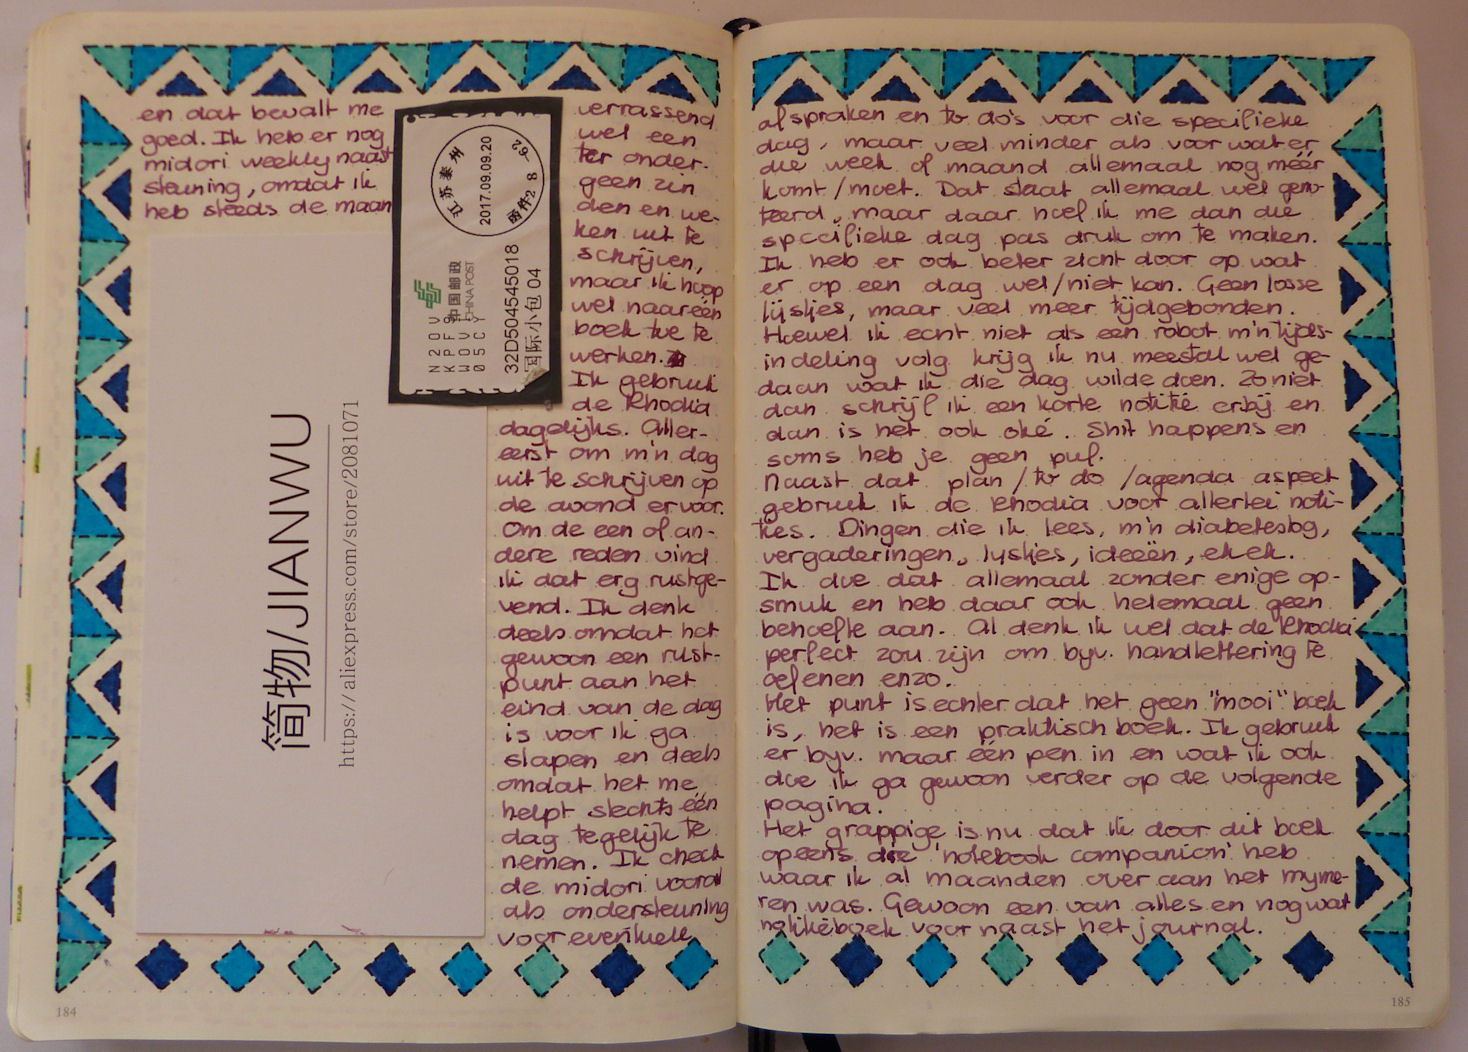 en dat bevalt me
goed. Ik heb er nog
midori weekly naast
steuning, omdat ik
heb steeds de maan
简物/JIANWU
https://aliexpress.com/store/2081071
江苏泰州
2017.09.09.20
中国邮政
CHINA POST
N20V
KPF9
WOVT
05CY
32D504545018
国际小包 04
verrassend
wel een
ter onder-
geen zin
den en we-
ken uit te
schrijven,
maar ik hoop
wel naar één
boek toe te
werken.
Ik gebruik
de Rhodia
dagelijks. Aller-
eerst om m'n dag
uit te schrijven op
de avond ervoor.
Om de een of an-
dere reden vind
ik dat erg rustge-
vend. Ik denk
deels omdat het
gewoon een rust-
punt aan het
eind van de dag
is voor ik ga
slapen en deels
omdat het me
helpt slechts één
dag tegelijk te
nemen. Ik check
de midori vooral
als ondersteuning
voor eventuele
184
afspraken en to do's voor die specifieke
dag, maar veel minder als voor wat er
die week of maand allemaal nog méér
komt/moet. Dat staat allemaal wel geno-
teerd, maar daar hoef ik me dan die
specifieke dag pas druk om te maken.
Ik heb er ook beter zicht door op wat
er op een dag wel/niet kan. Geen losse
lijstjes, maar veel meer tijdgebonden.
Hoewel ik echt niet als een robot m'n tijds-
indeling volg krijg ik nu meestal wel ge-
daan wat ik die dag wilde doen. Zo niet
dan schrijf ik een korte notitie erbij en
dan is het ook oké. Shit happens en
soms heb je geen puf.
Naast dat plan/to do/agenda aspect
gebruik ik de Rhodia voor allerlei noti-
ties. Dingen die ik lees, m'n diabeteslog,
vergaderingen, lijstjes, ideeën, ek ek.
Ik doe dat allemaal zonder enige op-
smuk en heb daar ook helemaal geen
behoefte aan. Al denk ik wel dat de Rhodia
perfect zou zijn om bijv. handlettering te
oefenen enzo.
Het punt is echter dat het geen "mooi" boek
is, het is een praktisch boek. Ik gebruik
er bijv. maar één pen in en wat ik ook
doe ik ga gewoon verder op de volgende
pagina.
Het grappige is nu dat ik door dit boek
opeens die 'notebook companion' heb
waar ik al maanden over aan het mijme-
ren was. Gewoon een van alles en nog wat
notitieboek voor naast het journal.
185